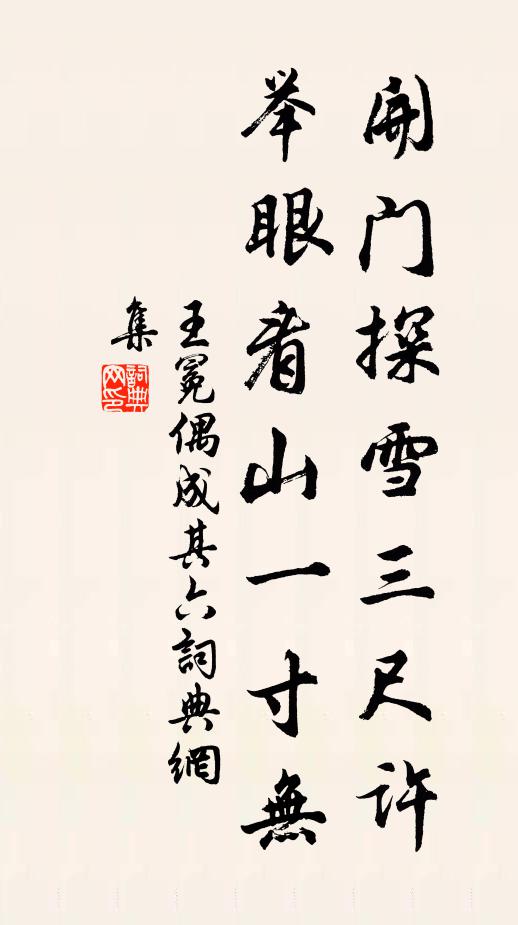 開门探雪三尺许
举眼看山一寸無
王冕偶成其六詞典網
集
詞典
网印